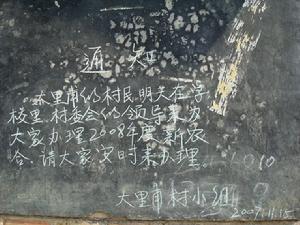 通知
大里甫的村民明天在学
校里村委会的领导来为
大家办理2008年度新农
合,请大家安时来办理。
大里甫村小组
2007.11.15